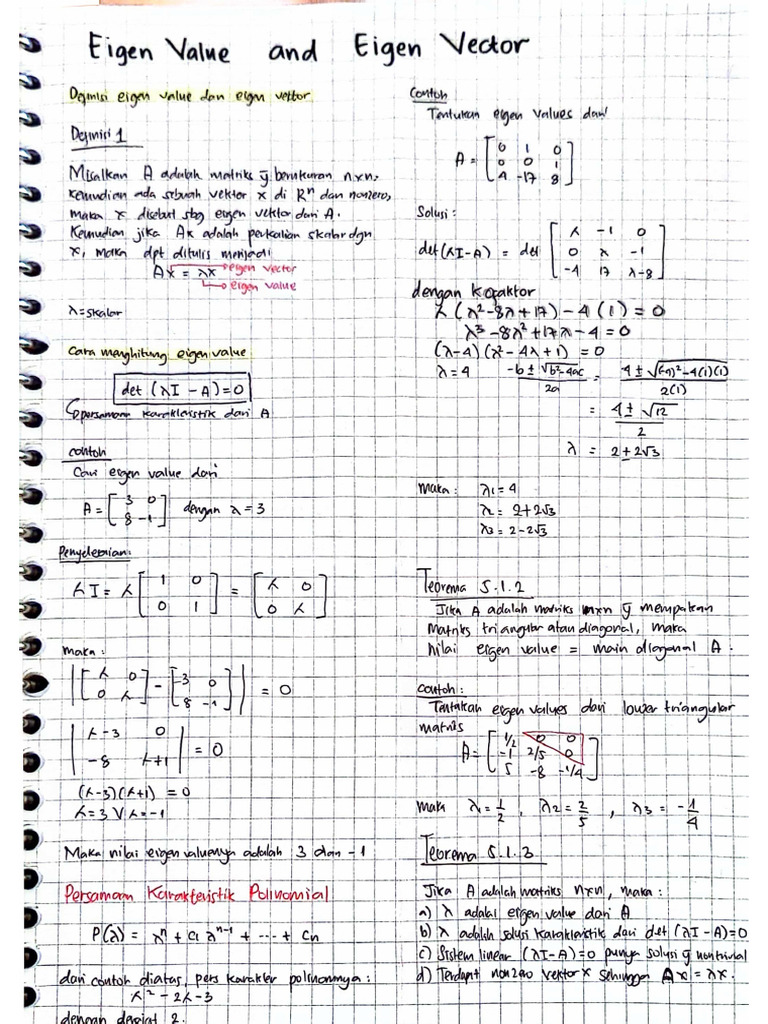 Eigen Value and Eigen Vector
Definisi eigen value dan eigen vektor
Definisi 1
Misalkan A adalah matriks yg berukuran n×n.
Kemudian ada sebuah vektor x di Rⁿ dan nonzero,
maka x disebut sbg eigen vektor dari A.
Kemudian jika Ax adalah perkalian skalar dgn
x, maka dpt ditulis menjadi
Ax = λx → eigen vector
→ eigen value
λ = skalar
Cara menghitung eigen value
det (λI − A) = 0
→ persamaan karakteristik dari A
contoh
Cari eigen value dari
A = [3 0
8 -1] dengan λ = 3
Penyelesaian:
λI = λ [1 0
0 1] = [λ 0
0 λ]
maka :
|[λ 0
0 λ] − [3 0
8 -1]| = 0
|λ-3 0
-8 λ+1| = 0
(λ-3)(λ+1) = 0
λ=3 V λ=-1
Maka nilai eigen valuenya adalah 3 dan -1
Persamaan Karakteristik Polinomial
P(λ) = λⁿ + c₁ λⁿ⁻¹ + ... + cn
dari contoh diatas, pers karakter polinomnya :
λ² − 2λ − 3
dengan derajat 2.
Contoh
Tentukan eigen values dari
A = [0 1 0
0 0 1
4 -17 8]
Solusi :
det (λI − A) = det [λ -1 0
0 λ -1
-4 17 λ-8]
dengan kofaktor
λ (λ² − 8λ + 17) − 4 (1) = 0
λ³ − 8λ² + 17λ − 4 = 0
(λ−4) (λ² − 4λ + 1) = 0
λ = 4 (-b ± √b²-4ac)/2a = (4 ± √(-4)²-4(1)(1))/2(1)
= (4 ± √12)/2
λ = 2 + 2√3
Maka : λ₁ = 4
λ₂ = 2 + 2√3
λ₃ = 2 − 2√3
Teorema 5.1.2
Jika A adalah matriks n×n yg merupakan
matriks triangular atau diagonal, maka
nilai eigen value = main diagonal A.
contoh :
Tentukan eigen values dari lower triangular
matriks
A = [1/2 0 0
-1 2/5 0
5 -8 -1/4]
maka λ₁ = 1/2 , λ₂ = 2/5 , λ₃ = -1/4
Teorema 5.1.3
Jika A adalah matriks n×n, maka :
a) λ adalal eigen value dari A
b) λ adalah solusi karakteristik dari det (λI − A) = 0
c) Sistem linear (λI − A) = 0 punya solusi yg nontrivial
d) Terdapt nonzero vektor x sehingga Ax = λx.